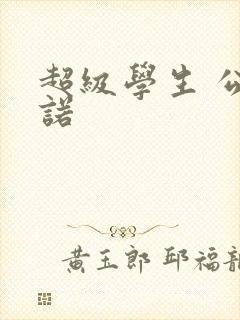 超級學生
諾
黃玉郎 邱福龍